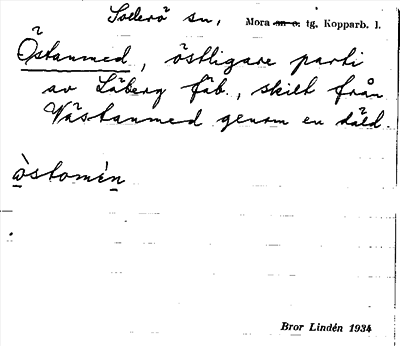 Sollerö sn, Mora sn o. tg. Kopparb. l.
Östanmed, östligare parti
av Låberg fäb., skilt från
Västanmed genom en däld.
òstomén
Bror Lindén 1934